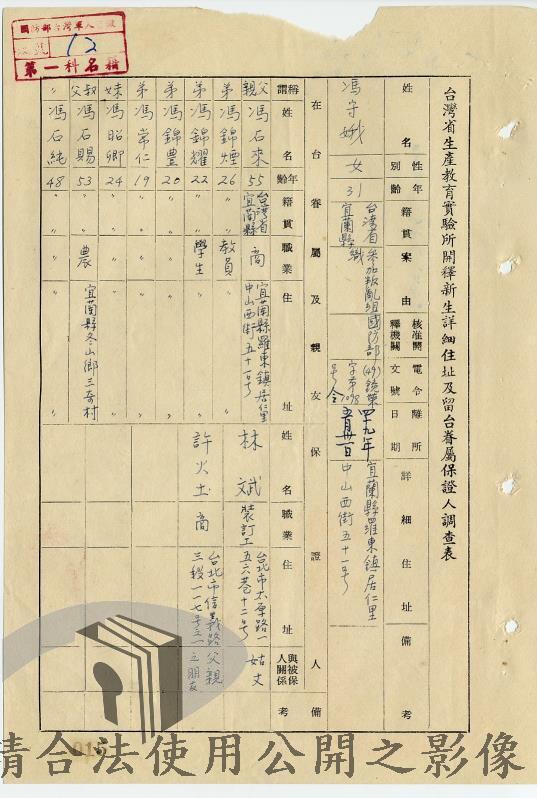 台灣省生產教育實驗所開釋新生詳細住址及留台眷屬保證人調查表
姓名 性別 年齡 籍貫 案由 核准開釋機關 電令文號 離所日期 詳細住址 備考
馮守娥 女 31 台灣省宜蘭縣 參加叛亂組織 國防部 四十九年五月卅一日 宜蘭縣羅東鎮居仁里中山西街五十一號
在台眷屬及親友
保證人
稱謂 姓名 年齡 籍貫 職業 住址
姓名 職業 住址 與被保人關係 備考
父親 馮石來 55 台灣省宜蘭縣 商 宜蘭縣羅東鎮居仁里中山西街五十一號
林斌 裝訂工 台北市太原路一五六巷十二號 姑丈
弟 馮錦煙 26 〃 教員 〃
弟 馮錦耀 22 〃 學生 〃
許火土 商 台北市信義路三段一一七號之一 父親之朋友
弟 馮錦豊 20 〃 〃 〃
弟 馮常仁 19 〃 〃 〃
妹 馮昭卿 24 〃 〃
叔父 馮石賜 53 〃 農 宜蘭縣冬山鄉三奇村
〃 馮石純 48 〃 〃 〃
12
第一科名籍
015
請合法使用公開之影像